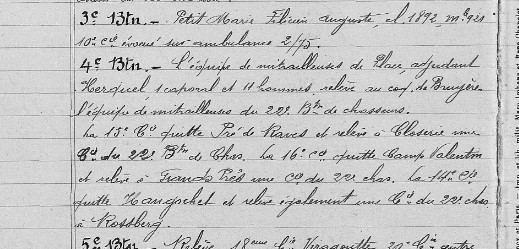 3e Btn. - Petit Marie Félicien Auguste, cl 1892, mle 921
10e Cie évacué sur ambulance 2/75.
4e Btn. - L'équipe de mitrailleuses de Place, adjudant
Herquel, 1 caporal et 11 hommes, relève au col de Bruyère
l'équipe de mitrailleuses du 22e Btn de chasseurs.
La 15e Cie quitte Pré de Raves et relève à Closerie une
Cie du 22e Btn de Chas. La 16e Cie quitte Camp Valentin
et relève à Grands Prés une Cie du 22e chas. La 14e Cie
quitte et relève également une Cie du 22e chas
à Rossberg.
5e Btn. - Relève 18eme Cie 20e Cie